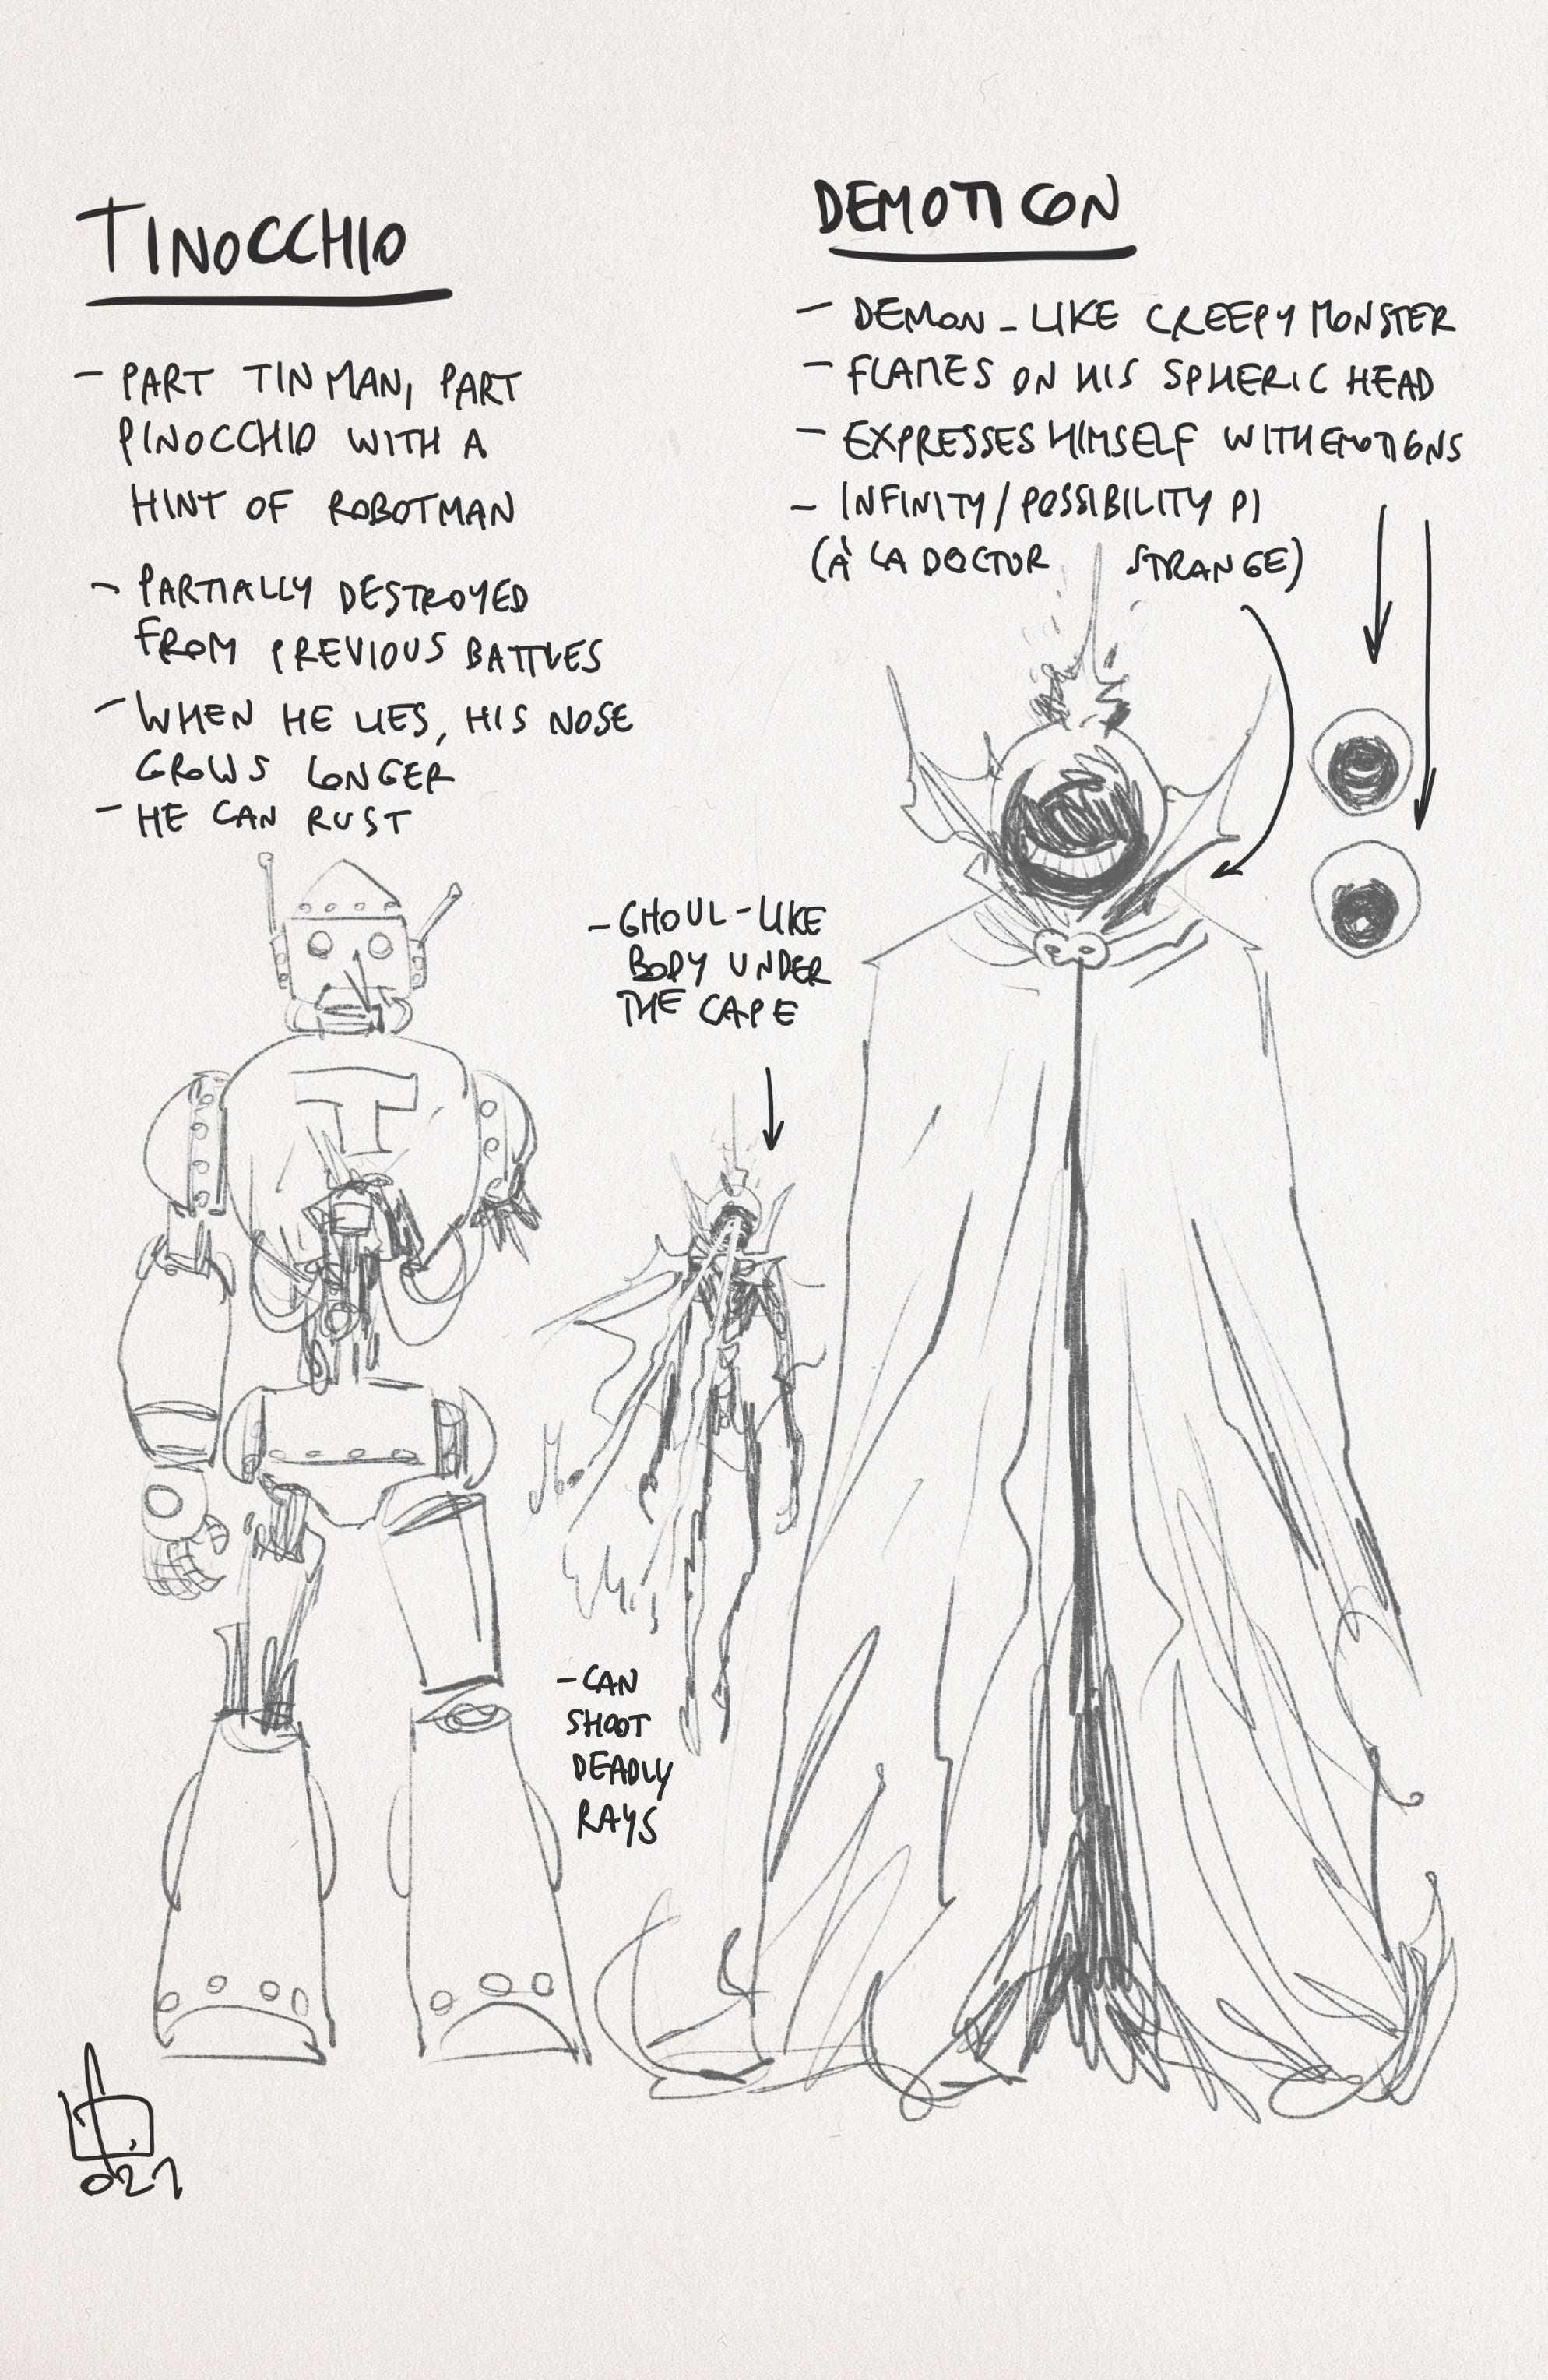 TINOCCHIO
- PART TIN MAN, PART
PINOCCHIO WITH A
HINT OF ROBOTMAN
- PARTIALLY DESTROYED
FROM PREVIOUS BATTLES
- WHEN HE LIES, HIS NOSE
GROWS LONGER
- HE CAN RUST
T
DEMOTICON
- DEMON-LIKE CREEPY MONSTER
- FLAMES ON HIS SPHERIC HEAD
- EXPRESSES HIMSELF WITH EMOTIONS
- INFINITY/POSSIBILITY PI
(À LA DOCTOR STRANGE)
- GHOUL-LIKE
BODY UNDER
THE CAPE
- CAN
SHOOT
DEADLY
RAYS
021